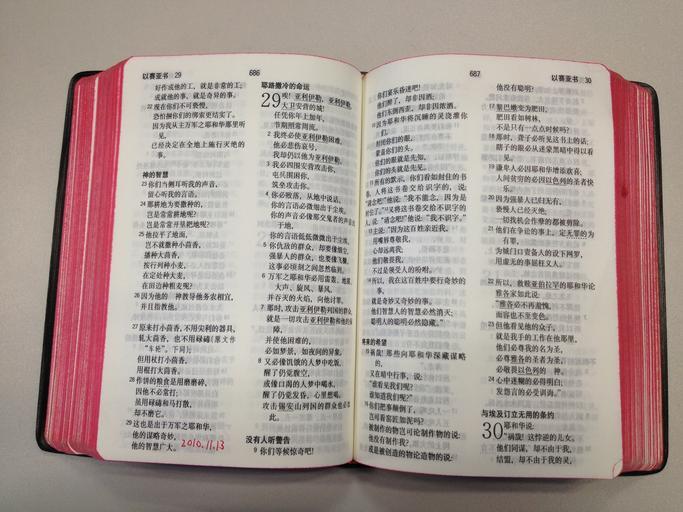 以赛亚书 29
686
好作成他的工，就是非常的工；
成就他的事，就是奇异的事。
22 现在你们不可亵慢，
恐怕捆你们的绑索更结实了。
因为我从主万军之耶和华那里听
见，
已经决定在全地上施行灭绝的
事。
神的智慧
23 你们当侧耳听我的声音，
留心听我的言语。
24 那耕地为要撒种的，
岂是常常耕地呢？
岂是常常开垦耙地呢？
25 他拉平了地面，
岂不就撒种小茴香，
播种大茴香，
按行列种小麦，
在定处种大麦，
在田边种粗麦呢？
26 因为他的　神教导他务农相宜，
并且指教他。
27 原来打小茴香，不用尖利的器具，
轧大茴香，也不用碌碡（原文作
“车轮”。下同）；
但用杖打小茴香，
用棍打大茴香。
28 作饼的粮食是用磨磨碎，
因他不必常打；
虽用碌碡和马打散，
却不磨它。
29 这也是出于万军之耶和华，
他的谋略奇妙，
他的智慧广大。
2010.11.13
耶路撒冷的命运
29 唉！亚利伊勒，亚利伊勒，
大卫安营的城！
任凭你年上加年，
节期照常周流。
2 我终必使亚利伊勒困难，
他必悲伤哀号，
我却仍以他为亚利伊勒。
3 我必四围安营攻击你，
屯兵围困你，
筑垒攻击你。
4 你必败落，从地中说话，
你的言语必微细出于尘埃，
你的声音必像那交鬼者的声音出
于地，
你的言语低低微微出于尘埃。
5 你仇敌的群众，却要像细尘，
强暴人的群众，也要像飞糠，
这事必顷刻之间忽然临到。
6 万军之耶和华必用雷轰、地震、
大声、旋风、暴风，
并吞灭的火焰，向他讨罪。
7 那时，攻击亚利伊勒列国的群众，
就是一切攻击亚利伊勒和他的保
障，
并使他困难的，
必如梦景，如夜间的异象。
8 又必像饥饿的人梦中吃饭，
醒了仍觉腹空；
或像口渴的人梦中喝水，
醒了仍觉发昏，心里想喝。
攻击锡安山列国的群众也必如
此。
没有人听警告
9 你们等候惊奇吧！
687
以赛亚书 30
你们宴乐昏迷吧！
他们醉了，却非因酒；
他们东倒西歪，却非因浓酒。
因为耶和华将沉睡的灵浇灌你
们，
封闭你们的眼，
蒙盖你们的头，
你们的眼就是先知，
你们的头就是先见。
所有的默示，你们看如封住的书
卷，人将这书卷交给识字的，说：
“请念吧！”他说：“我不能念，因为是
封住了。”又将这书卷交给不识字的
人，说：“请念吧！”他说：“我不识字。”
主说：“因为这百姓亲近我，
用嘴唇尊敬我，
心却远离我；
他们敬畏我，
不过是领受人的吩咐。
所以，我在这百姓中要行奇妙的
事，
就是奇妙又奇妙的事。
他们智慧人的智慧必然消灭；
聪明人的聪明必然隐藏。”
将来的希望
祸哉！那些向耶和华深藏谋略
的，
又在暗中行事，说：
“谁看见我们呢？
谁知道我们呢？”
你们把事颠倒了，
岂可看窑匠如泥吗？
被制作的物岂可论制作物的说：
他没有制作我？
或是被创造的物论造物的说：
他没有聪明？
17 黎巴嫩变为肥田，
肥田看如树林，
不是只有一点点时候吗？
18 那时，聋子必听见这书上的话；
瞎子的眼必从迷蒙黑暗中得以看
见。
19 谦卑人必因耶和华增添欢喜；
人间贫穷的必因以色列的圣者快
乐。
20 因为强暴人已归无有，
亵慢人已经灭绝，
一切找机会作孽的都被剪除。
21 他们在争讼的事上，定无罪的为
有罪，
为城门口责备人的设下网罗，
用虚无的事屈枉义人。
22 所以，救赎亚伯拉罕的耶和华论
雅各家如此说：
“雅各必不再羞愧，
面容也不至变色。
23 但他看见他的众子，
就是我手的工作在他那里，
他们必尊我的名为圣，
必尊雅各的圣者为圣，
必敬畏以色列的　神。
24 心中迷糊的必得明白；
发怨言的必受训诲。”
与埃及订立无用的条约
30 耶和华说：
“祸哉！这悖逆的儿女，
他们同谋，却不由于我，
结盟，却不由于我的灵，